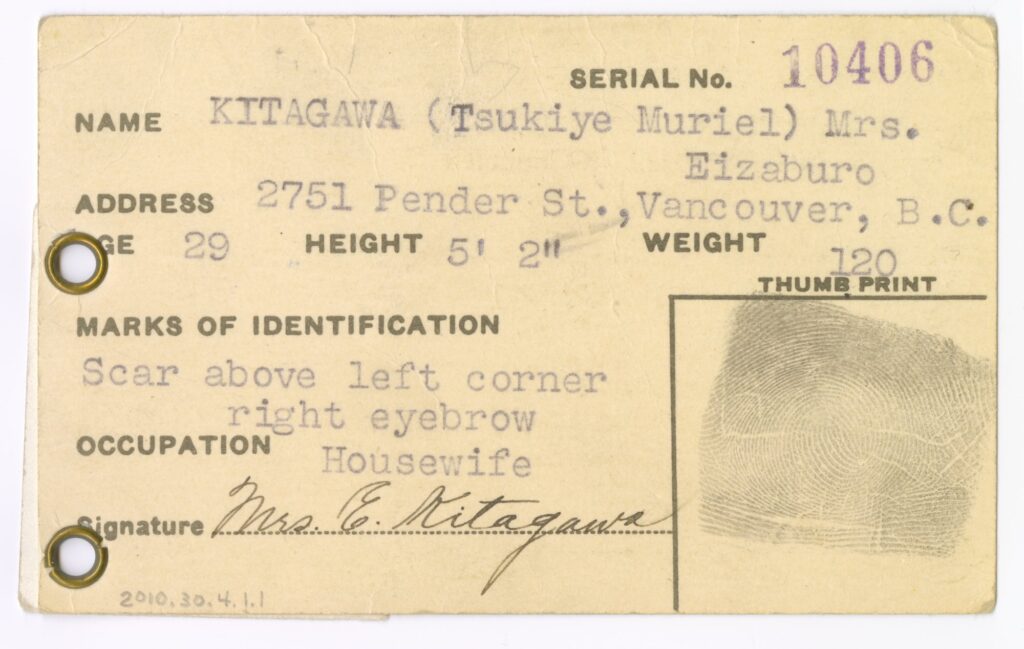 SERIAL No. 10406
NAME KITAGAWA (Tsukiye Muriel) Mrs.
Eizaburo
ADDRESS 2751 Pender St., Vancouver, B.C.
GE 29 HEIGHT 5' 2" WEIGHT 120
THUMB PRINT
MARKS OF IDENTIFICATION
Scar above left corner
right eyebrow
OCCUPATION Housewife
Signature Mrs. E. Kitagawa
2010.30.4.1.1